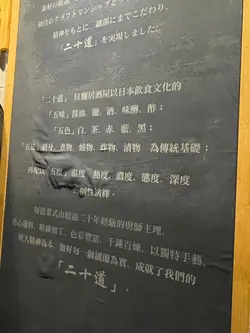 独自のクラフトマンシップと
精神をもちに、細部にまでこだわり、
「二十道」を実現しました。
「二十道」 拉麵居酒屋以日本飲食文化的
「五味」醬油、鹽、酒、味醂、酢；
「五色」白、茶、赤、藍、黑；
「五法」刺身、煮物、燒物、炸物、漬物 為傳統基礎；
再配以「五度」溫度、熱度、濃度、態度、深度
個性演繹。
每道菜式由超過二十年經驗的廚師主理，
悉心選料、精緻加工、色彩豐富、千錘百煉，以獨特手藝、
匠人精神為本，做好每一個細節為實，成就了我們的
「二十道」.